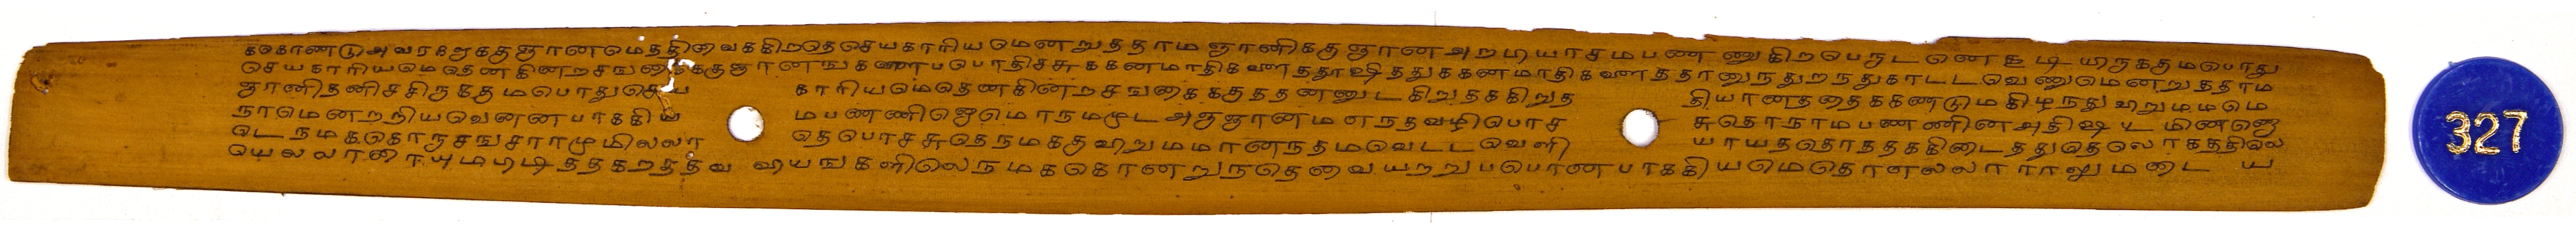 கொண்டு அவரகறுககு ஞானமெததிவைககிறதெ செயகாரியமெனறுததாம ஞானிககு ஞான அறமியாசமபணணுகிறபெருடனெ கூடியிருககுமபொது
செயகாரியமெதெனகினறசஙகைககுஞானஙகணபபொதிச்சுககனமாதிகணததூஷிததுககனமாதிகணததானுநதுறநதுகாடடவெணுமெனறுததாம
ஞானிதனிசசிருககுமபொதுசெய காரியமெதெனகினறசஙகைககுததனனுடகிறுதககிறுத தியானததைககணடுமகிழநதுவறுமமமெ
நாமெனறறியவெனனபாககிய மபணணிஜெமொநமமுடஅஞஞானமஎநதவழிபொச சுதொநாமபணணினஅதிஷடமினஜெ
டெநமககொருசஙசாரமுமிலலா தெபொசசுதெநமககுவறுமமானநதமவெடடவெளி யாயததொததககிடைததுதெலொகததிலெ
மெலலாரையுமபிடிததகறததவ வியஙகளிலெநமககொனறுநதெவையறறுபபொணபாககியமெதொஎலலாராலுமடைய